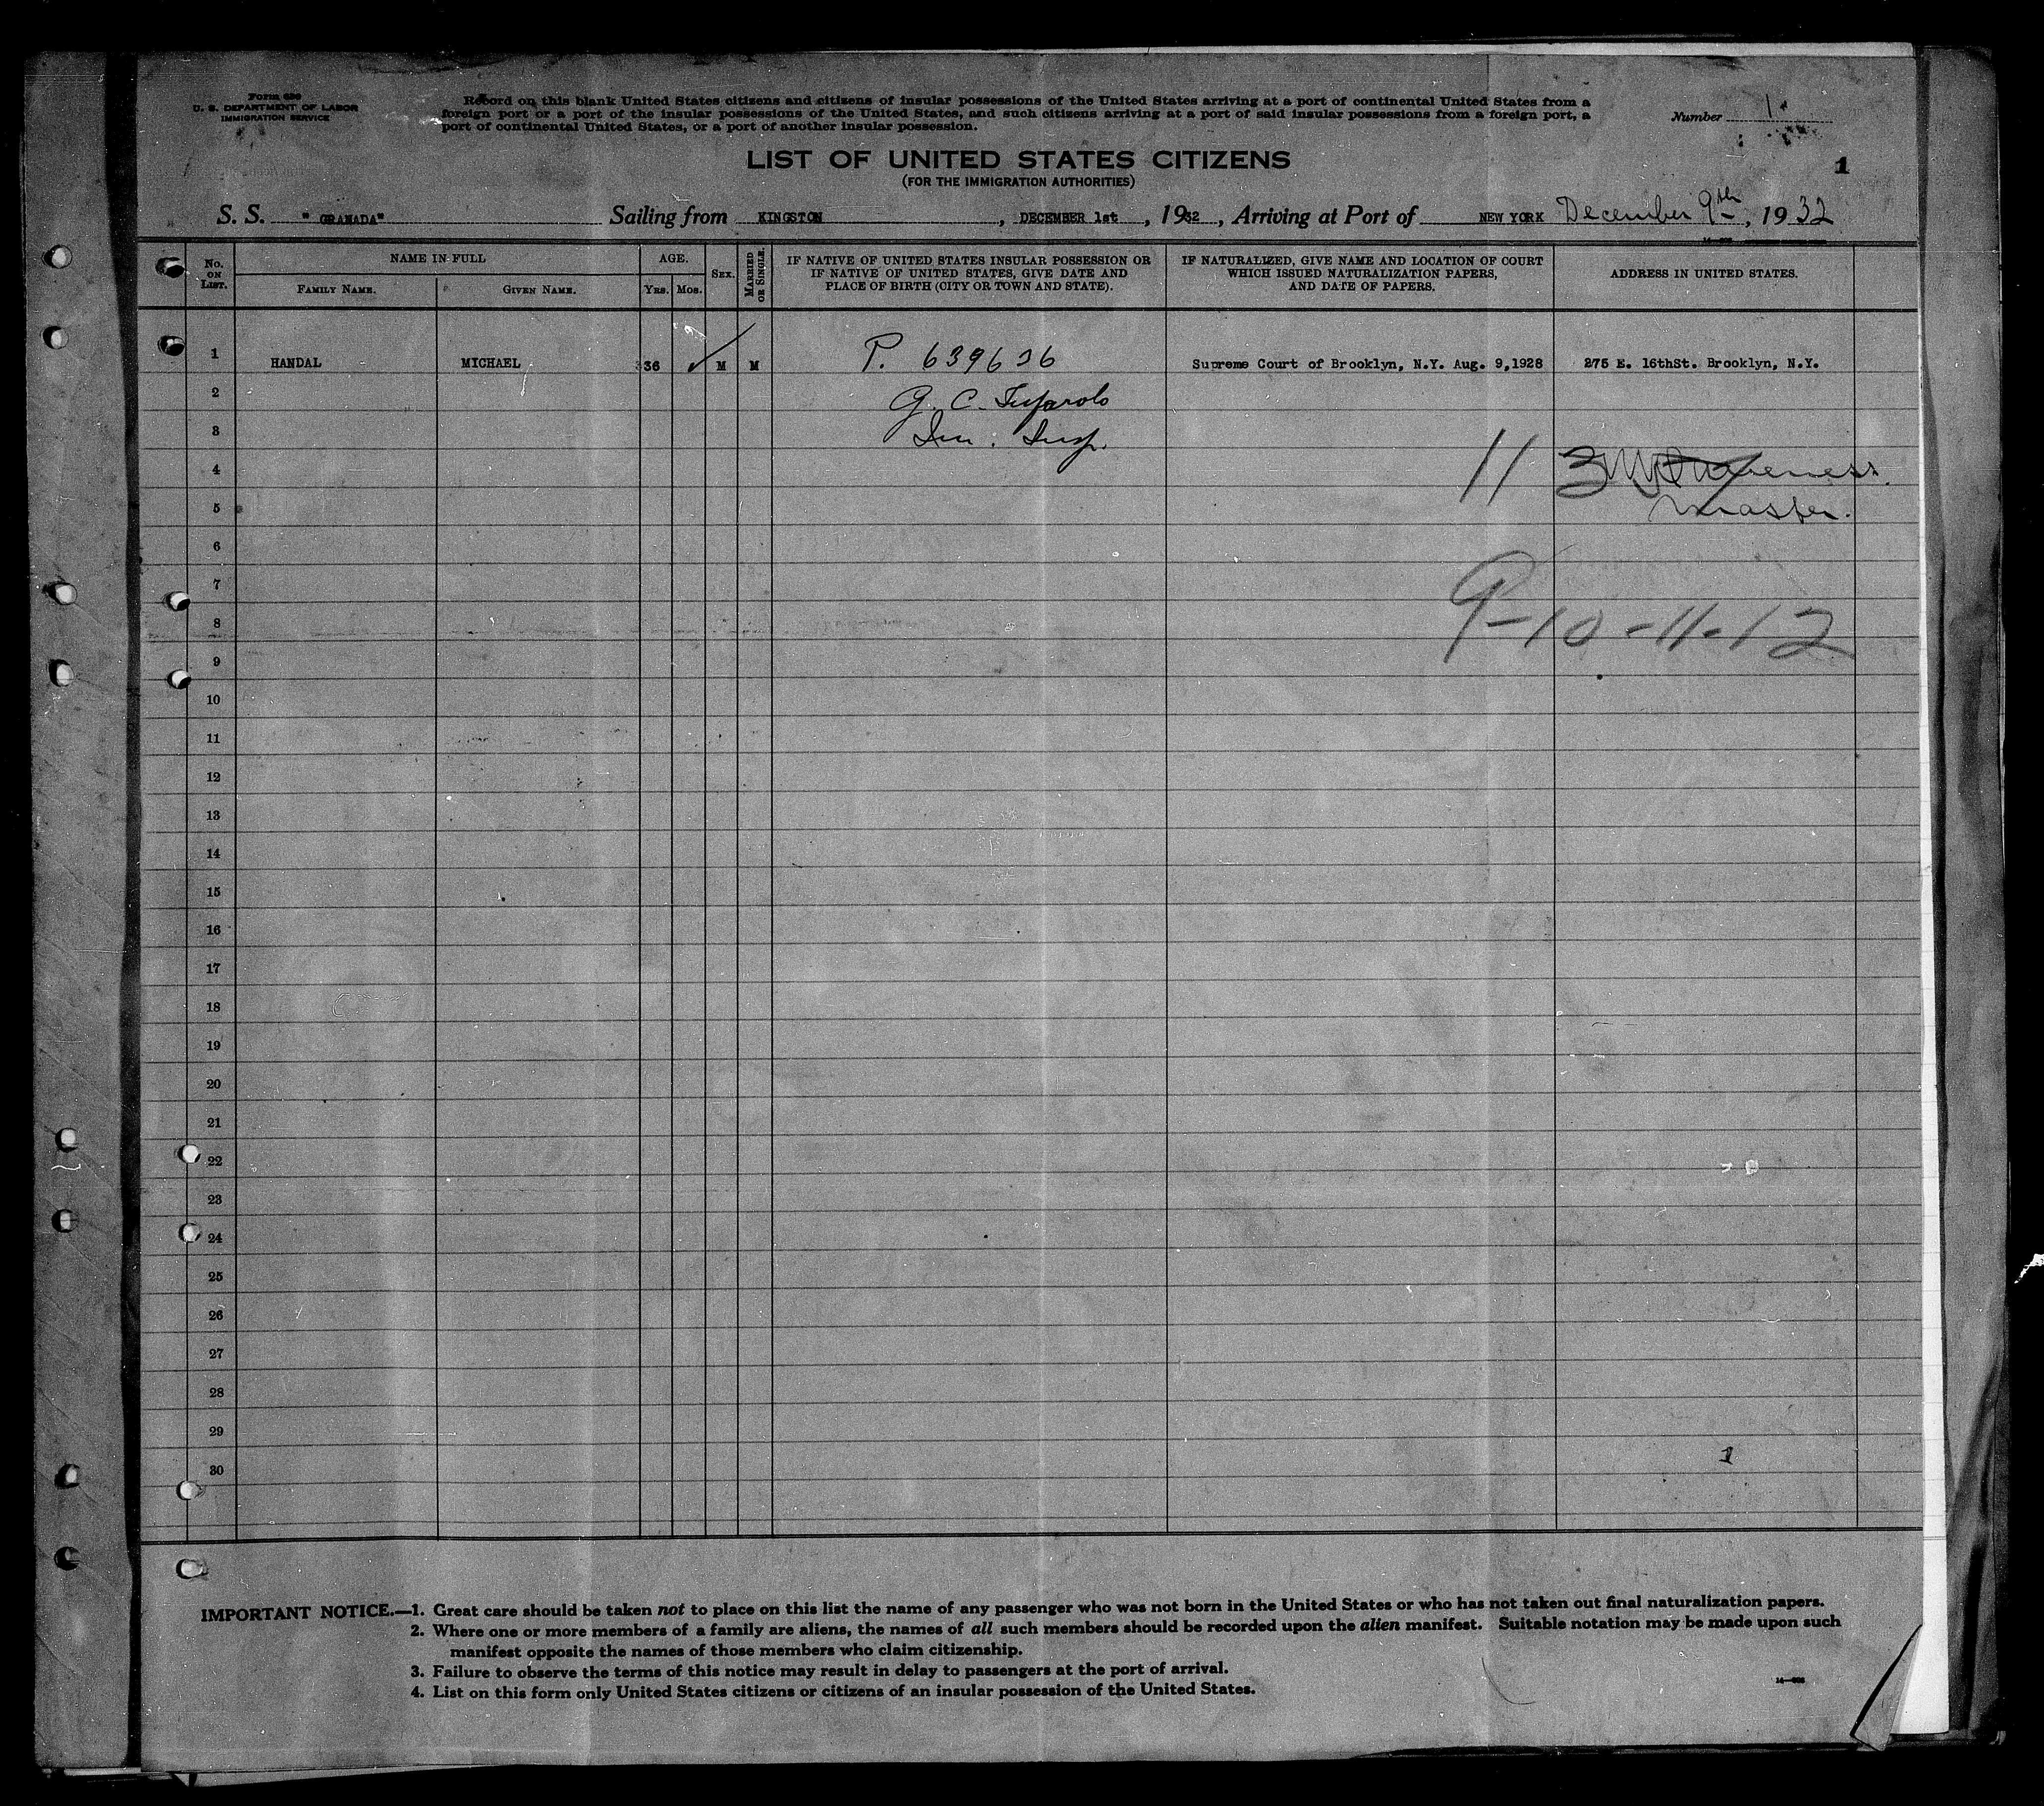 Form 630
U. S. DEPARTMENT OF LABOR
IMMIGRATION SERVICE
Record on this blank United States citizens and citizens of insular possessions of the United States arriving at a port of continental United States from a
foreign port or a port of the insular possessions of the United States, and such citizens arriving at a port of said insular possessions from a foreign port, a
port of continental United States, or a port of another insular possession.
Number 1
LIST OF UNITED STATES CITIZENS
(FOR THE IMMIGRATION AUTHORITIES)
1
S. S. "GRANADA" Sailing from KINGSTON, DECEMBER 1st, 1932, Arriving at Port of NEW YORK December 9th, 1932
No. ON LIST.
NAME IN FULL
FAMILY NAME.
GIVEN NAME.
AGE.
YRS. MOS.
SEX.
MARRIED OR SINGLE.
IF NATIVE OF UNITED STATES INSULAR POSSESSION OR
IF NATIVE OF UNITED STATES, GIVE DATE AND
PLACE OF BIRTH (CITY OR TOWN AND STATE).
IF NATURALIZED, GIVE NAME AND LOCATION OF COURT
WHICH ISSUED NATURALIZATION PAPERS,
AND DATE OF PAPERS.
ADDRESS IN UNITED STATES.
1 HANDAL MICHAEL 36 M M P. 639636 Supreme Court of Brooklyn, N.Y. Aug. 9,1928 275 E. 16thSt. Brooklyn, N.Y.
2 G. C.
3 Im. Insp.
4 11 3
5 Master.
6
7
8 9-10-11-12
9
10
11
12
13
14
15
16
17
18
19
20
21
22
23
24
25
26
27
28
29
30 1
IMPORTANT NOTICE.—1. Great care should be taken not to place on this list the name of any passenger who was not born in the United States or who has not taken out final naturalization papers.
2. Where one or more members of a family are aliens, the names of all such members should be recorded upon the alien manifest. Suitable notation may be made upon such
manifest opposite the names of those members who claim citizenship.
3. Failure to observe the terms of this notice may result in delay to passengers at the port of arrival.
4. List on this form only United States citizens or citizens of an insular possession of the United States.